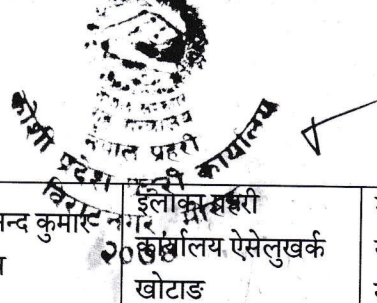 नेपाल प्रहरी
कोशी प्रदेश प्रहरी कार्यालय
विराटनगर मोरङ
न्द कुमार
ईलाका प्रहरी
कार्यालय ऐसेलुखर्क
खोटाङ